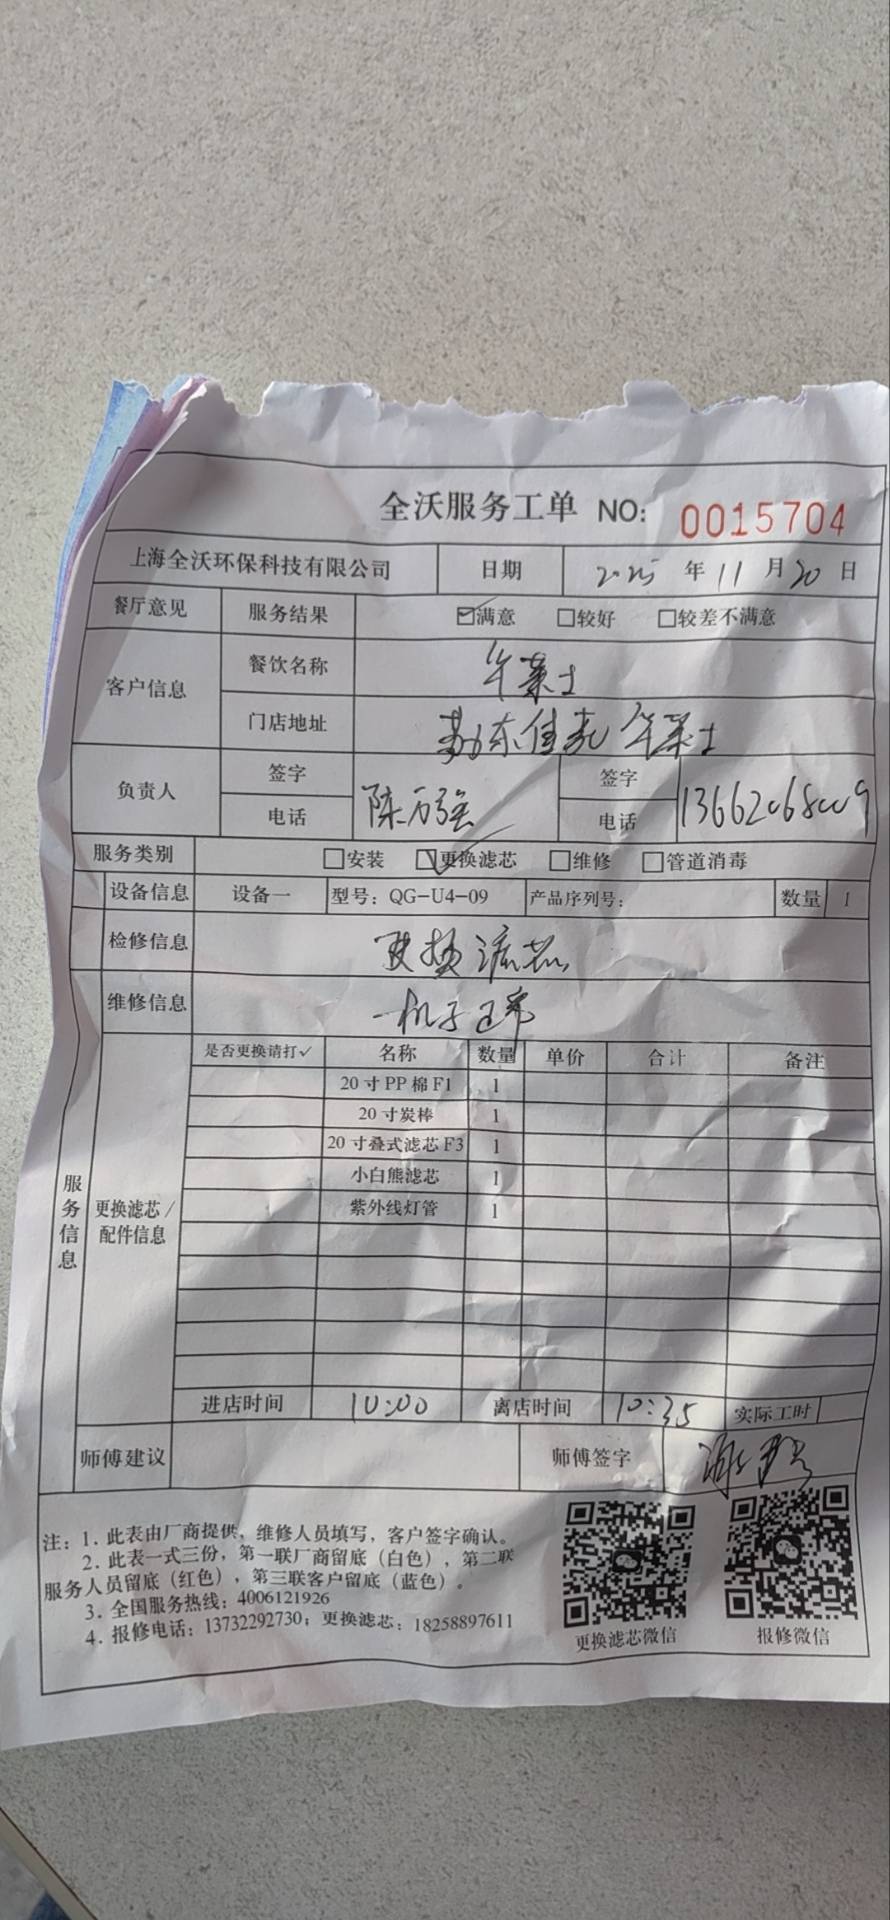 全沃服务工单 NO: 0015704
上海全沃环保科技有限公司 日期 2025 年 11 月 20 日
餐厅意见 服务结果 ☑满意 □较好 □较差不满意
客户信息 餐饮名称 华莱士
门店地址 东佳 华莱士
负责人 签字 陈万强 签字
电话 电话 13662068009
服务类别 □安装 ☑更换滤芯 □维修 □管道消毒
设备信息 设备一 型号: QG-U4-09 产品序列号: 数量 1
检修信息 更换滤芯
维修信息 机子正常
服务信息
更换滤芯/配件信息
是否更换请打✓ 名称 数量 单价 合计 备注
20寸PP棉F1 1
20寸炭棒 1
20寸叠式滤芯F3 1
小白熊滤芯 1
紫外线灯管 1
进店时间 10:00 离店时间 10:35 实际工时
师傅建议 师傅签字
注: 1. 此表由厂商提供, 维修人员填写, 客户签字确认。
2. 此表一式三份, 第一联厂商留底 (白色), 第二联
服务人员留底 (红色), 第三联客户留底 (蓝色)。
3. 全国服务热线: 4006121926
4. 报修电话: 13732292730; 更换滤芯: 18258897611
更换滤芯微信 报修微信